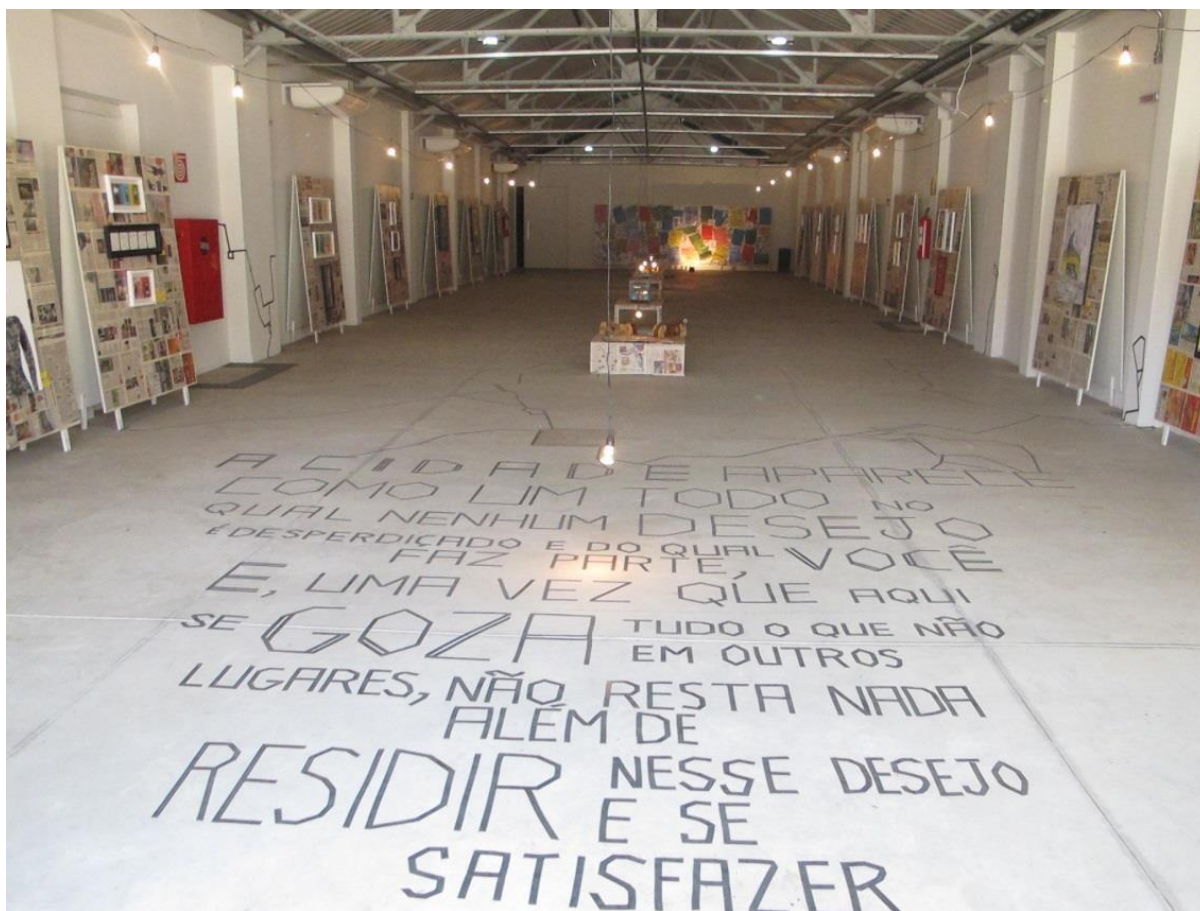 A CIDADE APARECE
COMO UM TODO NO
QUAL NENHUM DESEJO
É DESPERDIÇADO E DO QUAL VOCÊ
FAZ PARTE,
E, UMA VEZ QUE AQUI
SE GOZA TUDO O QUE NÃO
EM OUTROS
LUGARES, NÃO RESTA NADA
ALÉM DE
RESIDIR NESSE DESEJO
E SE
SATISFAZER